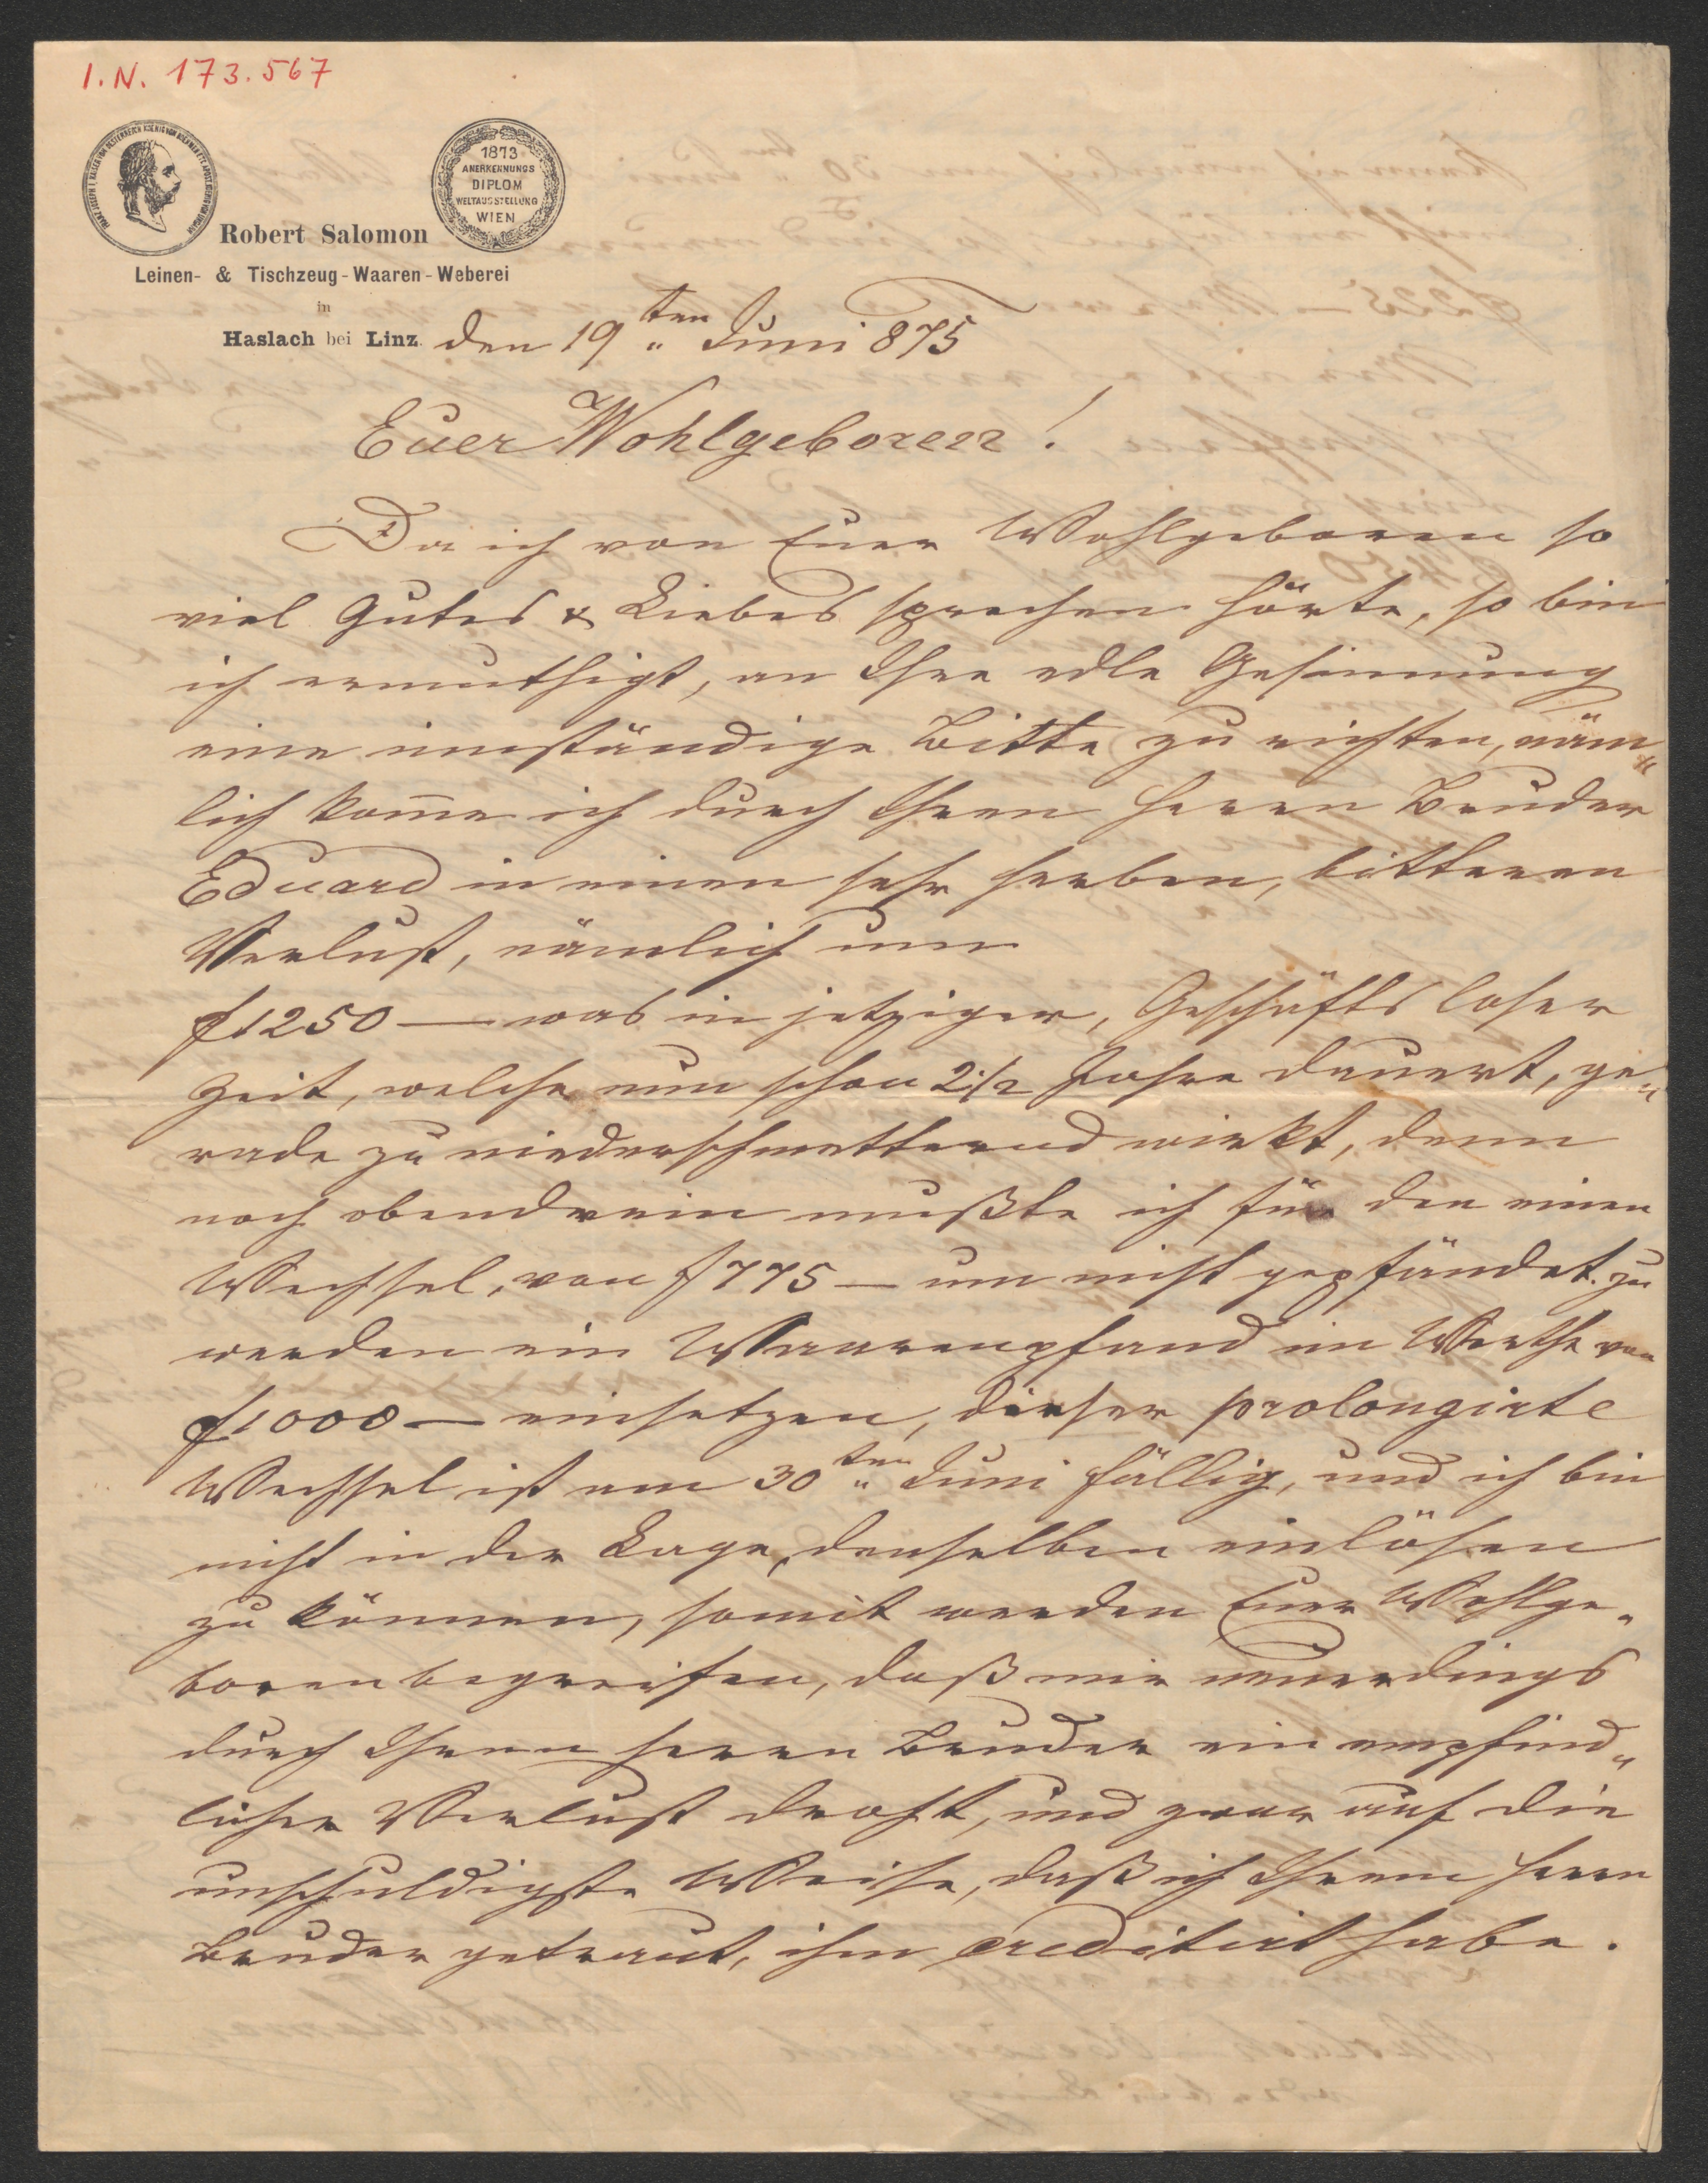 I.N. 173.567
FRANZ JOSEPH I. KAISER VON OESTERREICH KOENIG VON BOEHMEN ETC. APOST. KOENIG VON UNGARN
1873
ANERKENNUNGS
DIPLOM
WELTAUSSTELLUNG
WIEN
Robert Salomon
Leinen- & Tischzeug-Waaren-Weberei
in
Haslach bei Linz. den 19ten Juni 875
Euer Wohlgeboren!
Da ich von Euer Wohlgeboren so
viel Gutes & Liebes sprechen hörte, so bin
ich ermuthigt, an Ihre edle Gesinnung
eine inständige Bitte zu richten, näm„
lich kom̄e ich durch Ihren Herrn Bruder
Eduard in einen sehr herben, bitteren
Verlust, nämlich um
f 1250 — was in jetziger, Geschäfts loser
Zeit, welche nun schon 2 1/2 Jahre dauert, ge„
rade zu niederschmetternd wirkt, denn
noch obendrein mußte ich für den einen
Wechsel, von f 775 — um nicht gepfändet zu
werden ein Waarenpfand im Werthe von
f 1000 — einsetzen, dieser prolongirte
Wechsel ist am 30ten Juni fällig, und ich bin
nicht in der Lage, denselben einlösen
zu können, somit werden Euer Wohlge„
boren begreifen, daß mir neuerdings
durch Ihren Herrn Bruder ein empfind„
licher Verlust droht, und zwar auf die
unschuldigste Weise, daß ich Ihrem Herrn
Bruder getraut, ihm creditirt habe.